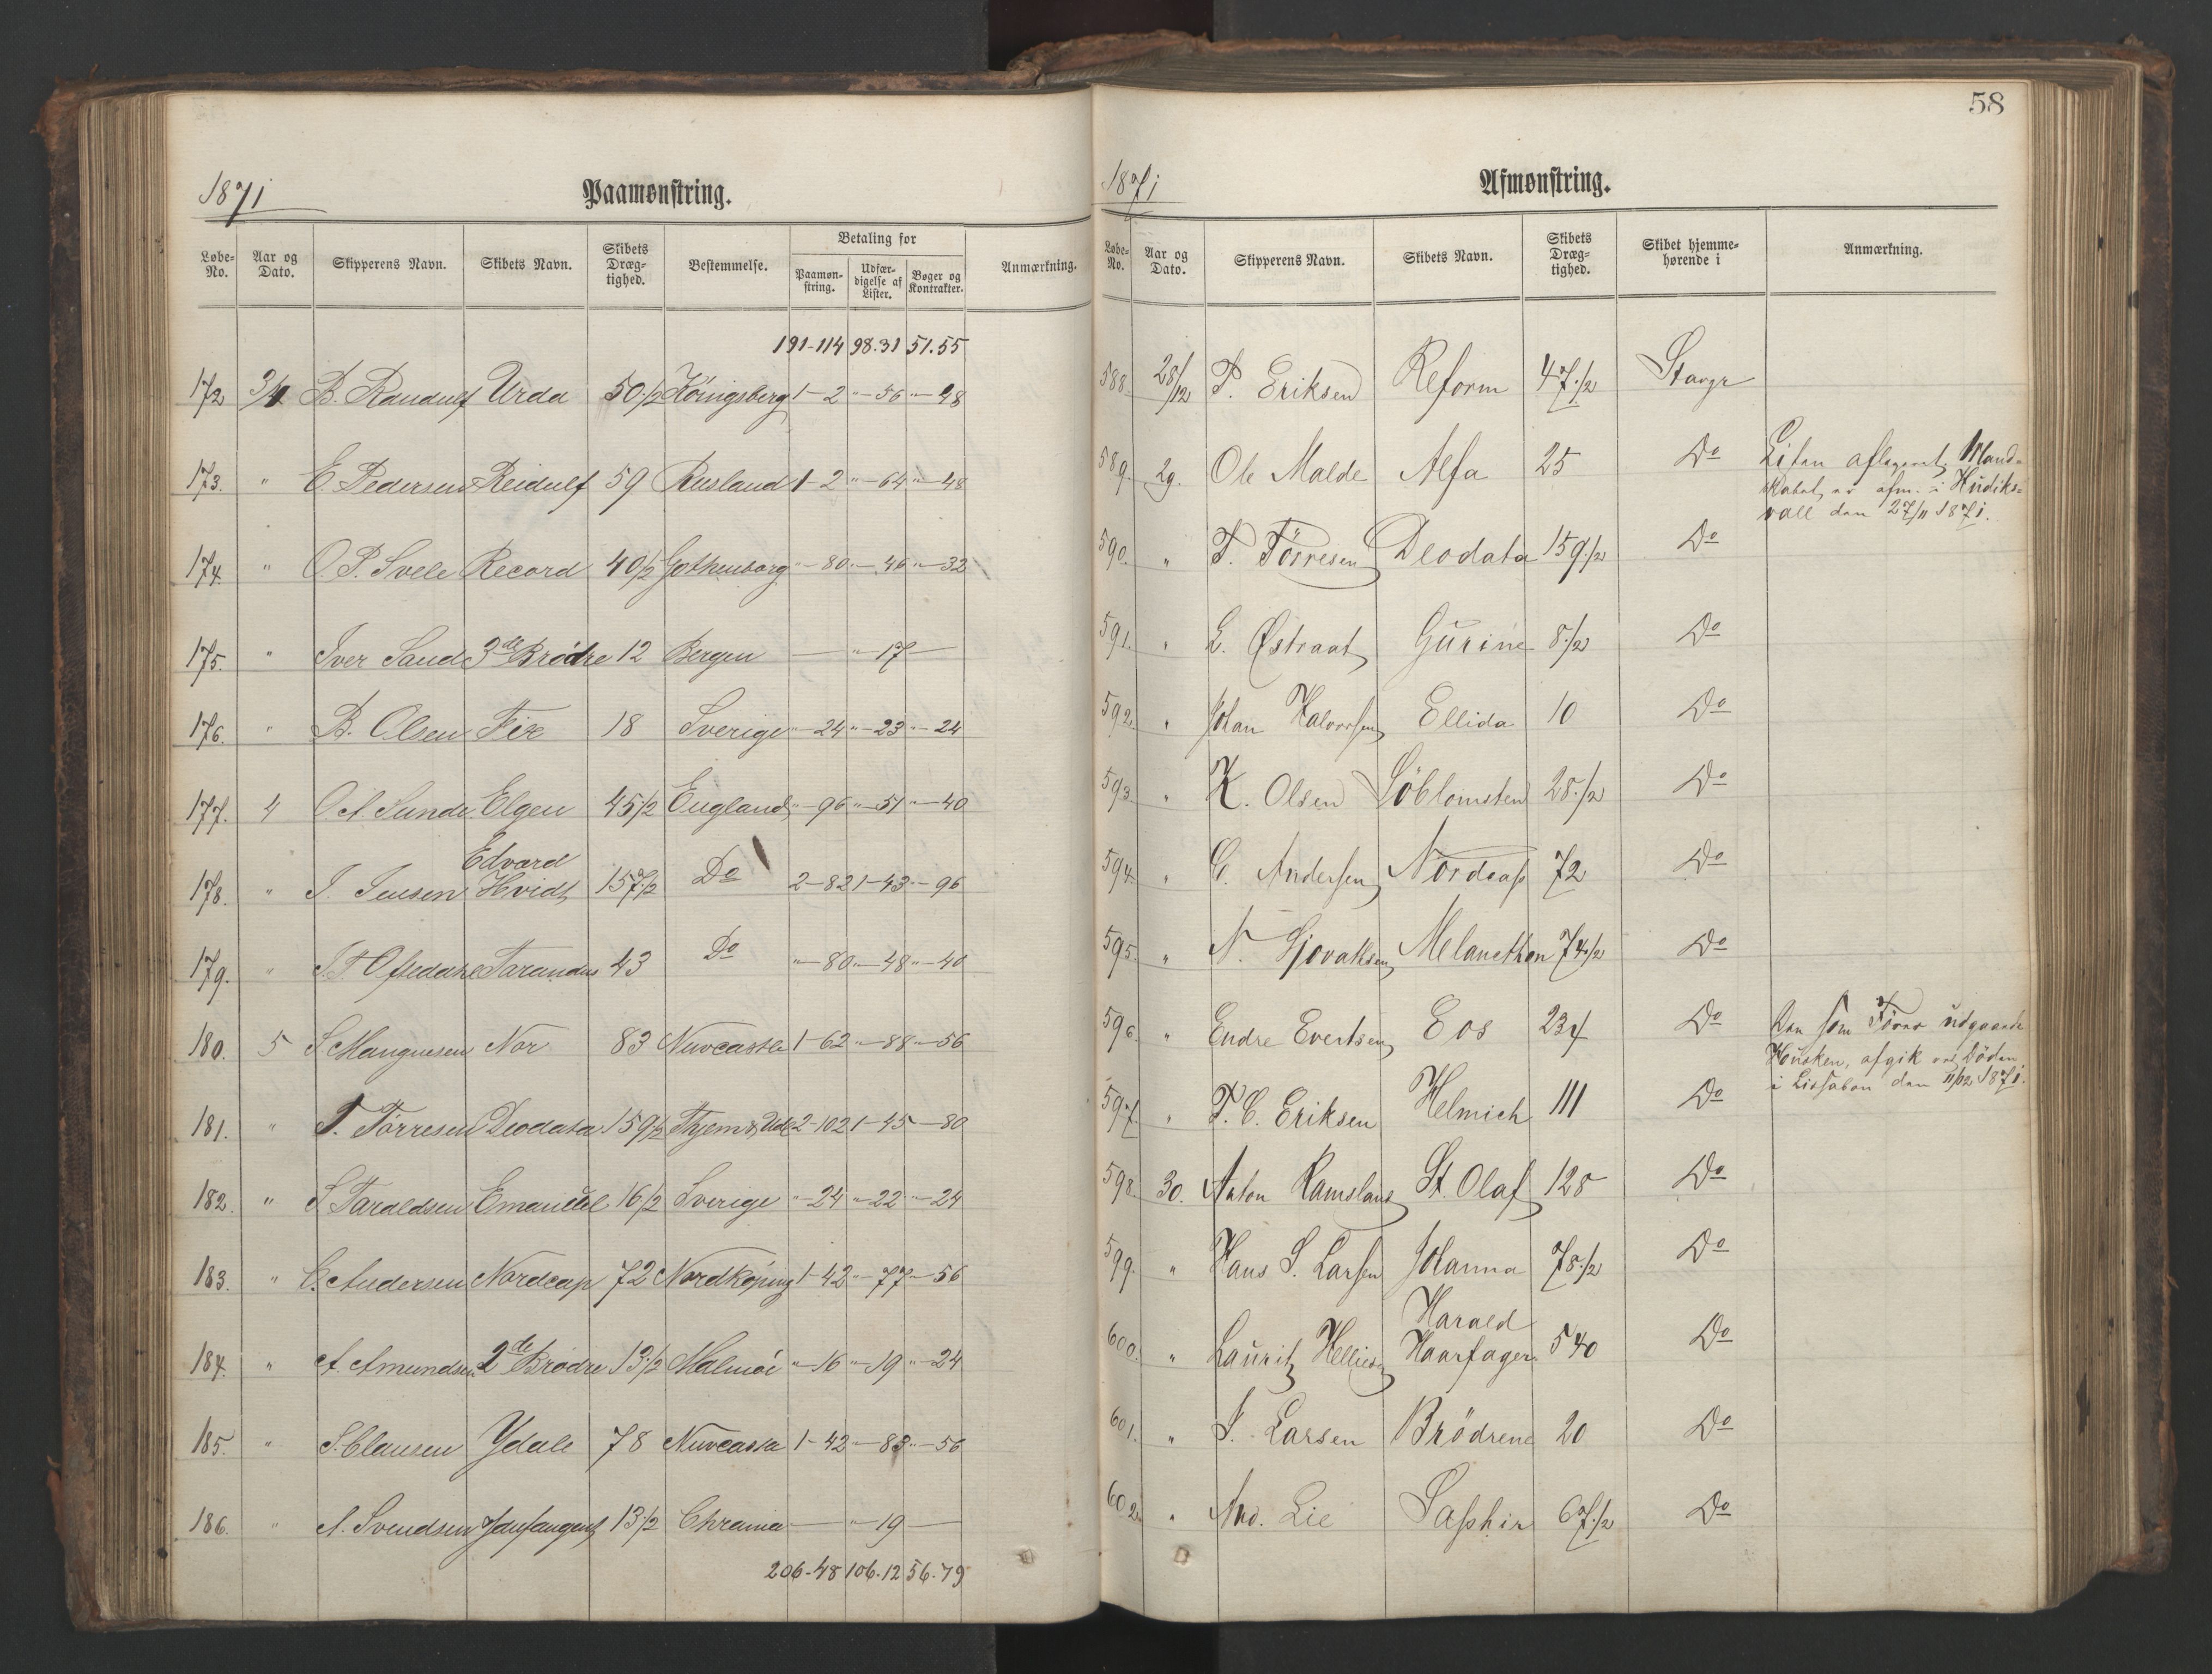 58
1871 Paamønstring.
Løbe-No. Aar og Dato. Skipperens Navn. Skibets Navn. Skibets Dræg-tighed. Bestemmelse. Betaling for Paamøn-string. Udfær-digelse af Lister. Bøger og Kontrakter. Anmærkning.
191-114 98.31 51.55
172 3/4 B. Randulf Urda 50 1/2 Königsberg 1-2 "-56 "-48
173. " E. Pedersen Reidulf 59 Rusland 1-2 "-64 "-48
174. " O. P. Svele Record 40 1/2 Gothenborg "-80 "-46 "-32
175. " Iver Sande 3de Brödre 12 Bergen — "-17 —
176. " B. Olsen Fix 18 Sverige "-24 "-23 "-24
177. 4 O A. Sunde Elgen 45 1/2 England "-96 "-51 "-40
178. " J. Jensen Edvard Hvidt 157 1/2 Do 2-82 1-43 "-96
179. " Tarandus 43 Do "-80 "-48 "-40
180. 5 S Mangnesen Nor 83 Nuvcastle 1-62 "-88 "-56
181. " T. Törresen Deodata 159 1/2 2-102 1-45 "-80
182. " S Taraldsen Emanuel 16 1/2 Sverige "-24 "-22 "-24
183. " C. Andersen Nordcap 72 Nordköping 1-42 "-77 "-56
184. " A. Amundsen 2de Brödre 13 1/2 Malmöe "-16 "-19 "-24
185. " S. Clausen Ydale 78 Nuvcastle 1-42 "-83 "-56
186. " A. Svendsen 13 1/2 Chrania — "-19 —
206-48 106.12 56-79
1871 Afmønstring.
Løbe-No. Aar og Dato. Skipperens Navn. Skibets Navn. Skibets Dræg-tighed. Skibet hjemme-hørende i Anmærkning.
588. 28/12 P. Eriksen Reform 47 1/2 Stavgr
589. 29. Ole Malde Alfa 25 Do Listen afleveret, Mand-
skabet er afm. i Hudiks-
vall den 27/11 1871.
590. " T. Törresen Deodata 159 1/2 Do
591. " L. Østraat Gurine 8 1/2 Do
592. " Johan Halvorsen Ellida 10 Do
593. " K. Olsen Söblomsten 28 1/2 Do
594. " C. Andersen Nordcap 72 Do
595. " N. Melancthon 74 1/2 Do
596. " Endre Evertsen Eos 234 Do Den som Förer udgaaede
Housken, afgik ved Döden
i Lissabon den 11/12 1871.
597. " T. C. Eriksen Helmich 111 Do
598. 30. Anton Ramsland St. Olaf 128 Do
599. " Hans S. Larsen Johanna 78 1/2 Do
600. " Lauritz Helliesen Harald Haarfager 540 Do
601. " S. Larsen Brödrene 20 Do
602. " And. Lie Saphir 67 1/2 Do